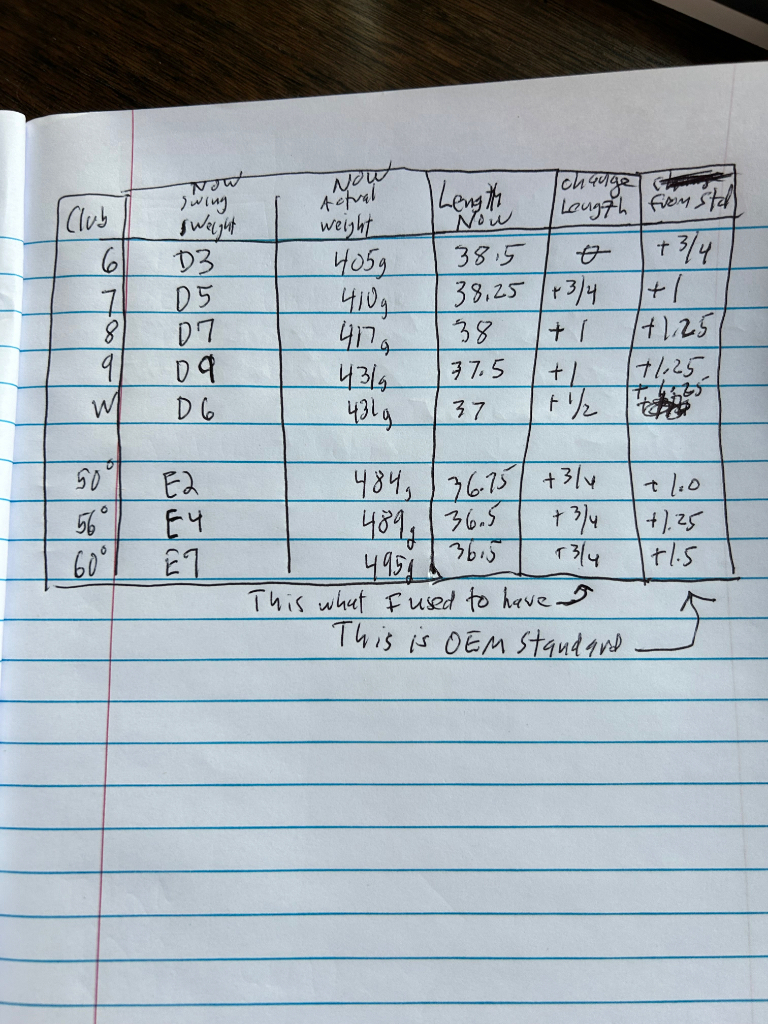 Club NOW Swing Weight NOW Actual weight Length NOW Change Length From Std
6 D3 405g 38.5 0 + 3/4
7 D5 410g 38.25 + 3/4 + 1
8 D7 417g 38 + 1 +1.25
9 D9 431g 37.5 +1 +1.25
W D6 431g 37 + 1/2 + 1.25
50° E2 484g 36.75 + 3/4 + 1.0
56° E4 489g 36.5 + 3/4 +1.25
60° E7 495g 36.5 + 3/4 +1.5
This what I used to have
This is OEM Standard